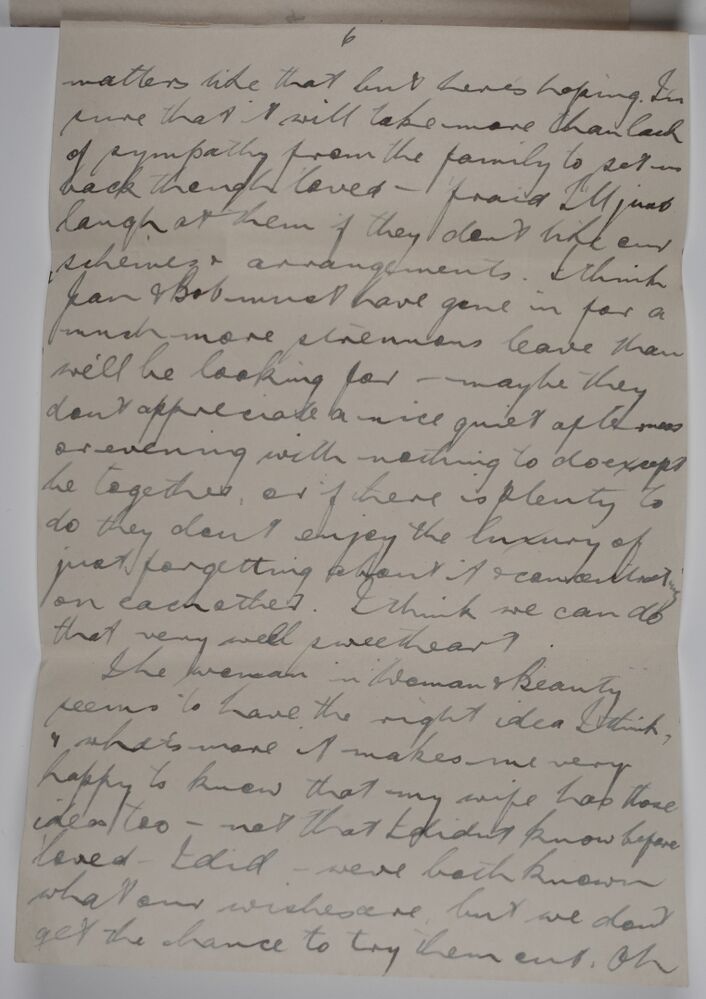 6
matters like that but here's hoping. I'm
sure that it will take more than lack
of sympathy from the family to set us
back though loved – 'fraid I'll just
laugh at them if they don't like our
schemes & arrangements. I think
Jan & Bob must have gone in for a
much more strenuous leave than
we'll be looking for – maybe they
don't appreciate a nice quiet afternoon
or evening with nothing to do except
be together, or if there is plenty to
do they don't enjoy the luxury of
just forgetting about it & concentrating
on each other. I think we can do
that very well sweetheart.
The woman in Woman & Beauty
seems to have the right idea I think,
& what's more it makes me very
happy to know that my wife has those
ideas too – not that I didn't know before
loved – I did – we've both known
what our wishes are, but we don't
get the chance to try them out. Oh